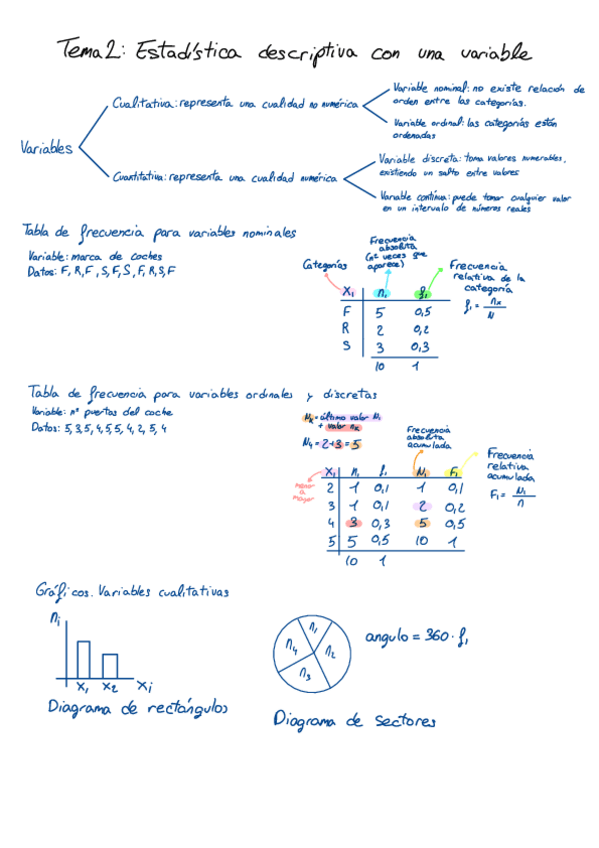 Tema 2: Estadística descriptiva con una variable
Variables
Cualitativa: representa una cualidad no numérica
Variable nominal: no existe relación de
orden entre las categorías.
Variable ordinal: las categorías están
ordenadas
Cuantitativa: representa una cualidad numérica
Variable discreta: toma valores numerables,
existiendo un salto entre valores
Variable continua: puede tomar cualquier valor
en un intervalo de números reales
Tabla de frecuencia para variables nominales
Variable: marca de coches
Datos: F, R, F, S, F, S, F, R, S, F
Categorías
Frecuencia
absoluta
(nº veces que
aparece)
Frecuencia
relativa de la
categoría
f₁ = nₓ/N
X₁ n₁ f₁
F 5 0,5
R 2 0,2
S 3 0,3
10 1
Tabla de frecuencia para variables ordinales y discretas
Variable: nº puertas del coche
Datos: 5, 3, 5, 4, 5, 5, 4, 2, 5, 4
Nₓ = último valor N₁
+ valor nₓ
N₄ = 2+3 = 5
Frecuencia
absoluta
acumulada
Frecuencia
relativa
acumulada
F₁ = N₁/n
menor
a
mayor
X₁ n₁ f₁ N₁ F₁
2 1 0,1 1 0,1
3 1 0,1 2 0,2
4 3 0,3 5 0,5
5 5 0,5 10 1
10 1
Gráficos. Variables cualitativas
nᵢ
x₁ x₂ xᵢ
Diagrama de rectángulos
n₁
n₂
n₃
n₄
angulo = 360 · f₁
Diagrama de sectores